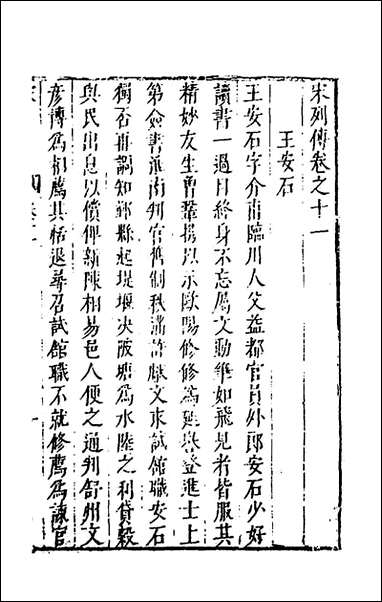 宋列傳卷之十一
王安石
王安石字介甫臨川人父益都官員外郎安石少好
讀書一過目終身不忘屬文動筆如飛見者皆服其
精妙友生曾鞏攜以示歐陽修修為延譽登進士上
第僉書淮南判官舊制秩滿許獻文求試館職安石
獨否再調知鄞縣起堤堰決陂塘為水陸之利貸穀
與民出息以償俾新陳相易邑人便之通判舒州文
彥博為相薦其恬退尋召試館職不就修薦為諫官